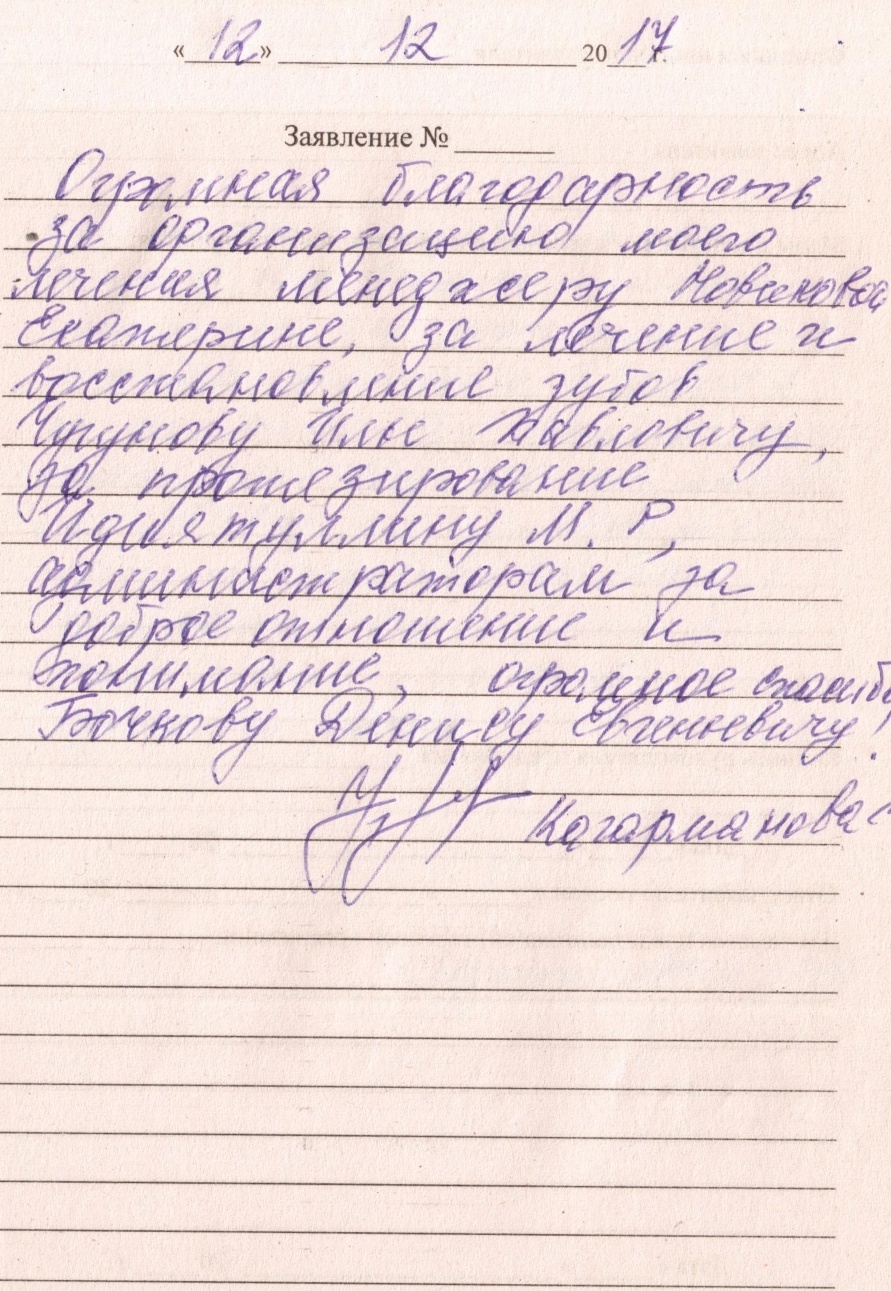 «12» 12 2017 г.
Заявление № ______
Огромная благодарность
за организацию моего
лечения менеджеру Новиковой
Екатерине, за лечение и
восстановление зубов
Чугунову Илье Павловичу,
за протезирование
Идиятуллину М. Р,
администраторам за
доброе отношение и
понимание, огромное спасибо
Бочкову Денису Евгеньевичу!
Кагарманова